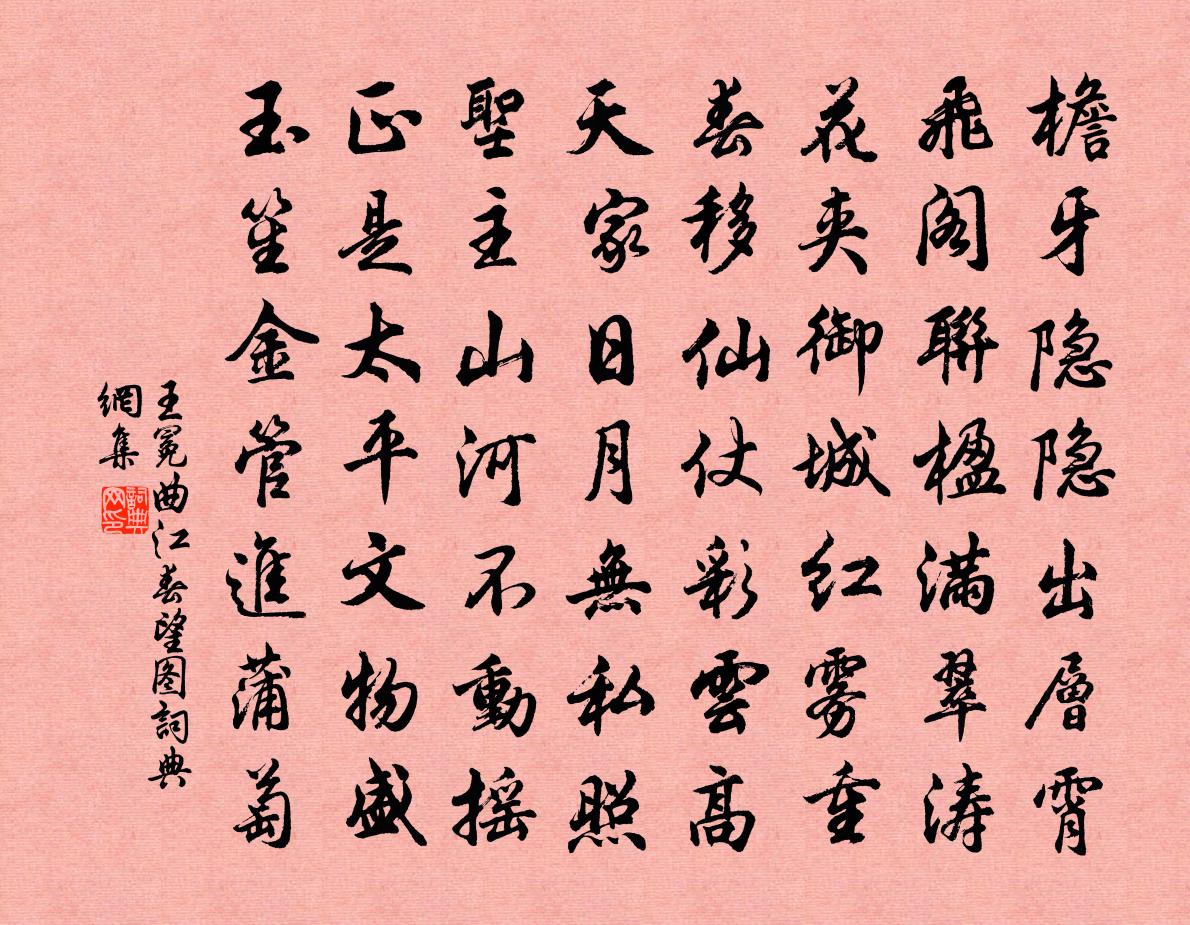 檐牙隐隐出層霄
飛阁聯楹满翠涛
花夹御城红雾重
春移仙仗彩雲高
天家日月無私照
聖主山河不動摇
正是太平文物盛
玉笙金管進蒲萄
王冕曲江春望图詞典
網集
詞典网印